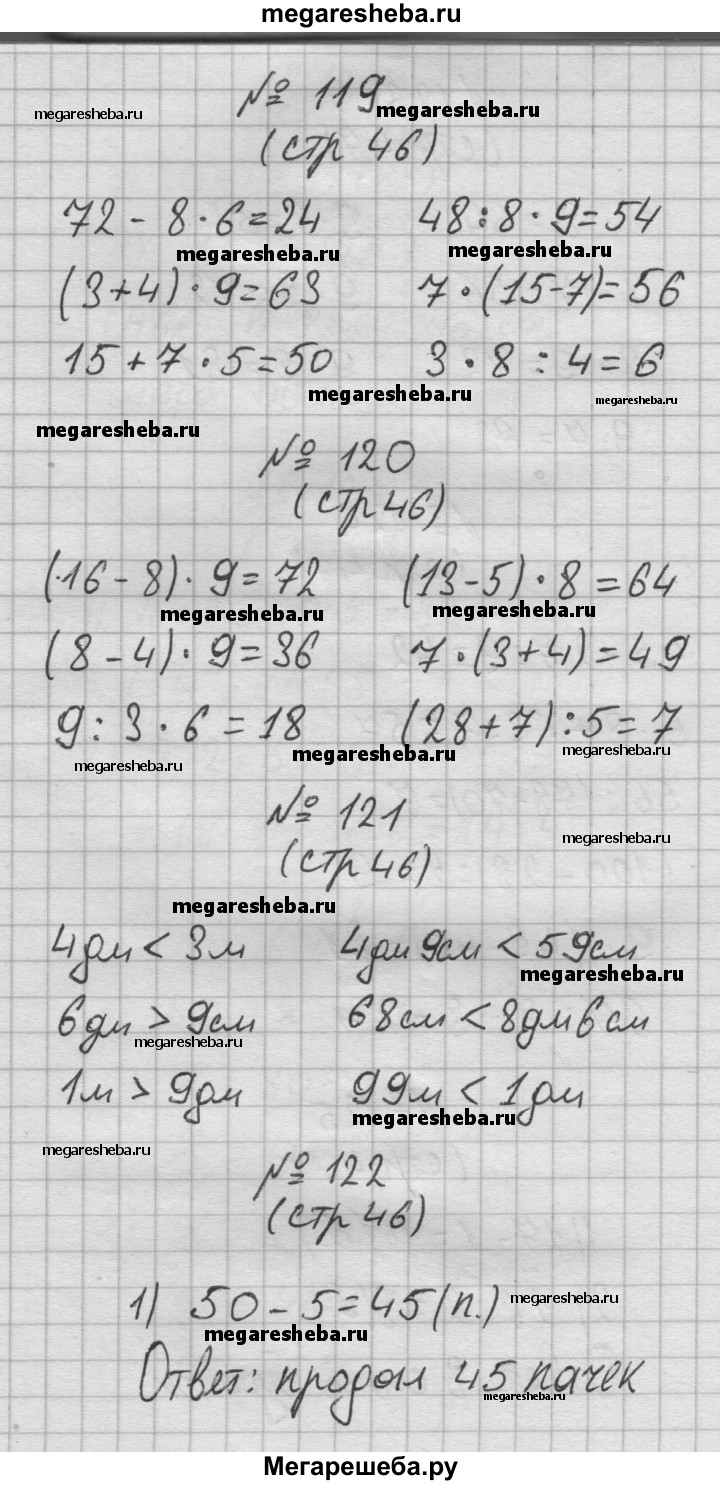 megaresheba.ru
№ 119
megaresheba.ru
megaresheba.ru
(стр 46)
72 - 8 · 6 = 24 48 : 8 · 9 = 54
megaresheba.ru megaresheba.ru
(3+4) · 9 = 63 7 · (15-7) = 56
15 + 7 · 5 = 50 3 · 8 : 4 = 6
megaresheba.ru megaresheba.ru
megaresheba.ru
№ 120
(стр 46)
(16 - 8) · 9 = 72 (13 - 5) · 8 = 64
megaresheba.ru megaresheba.ru
(8 - 4) · 9 = 36 7 · (3+4) = 49
9 : 3 · 6 = 18 (28+7) : 5 = 7
megaresheba.ru megaresheba.ru
megaresheba.ru
№ 121
megaresheba.ru
(стр 46)
megaresheba.ru
4дм < 3м 4дм 9см < 59см
megaresheba.ru
6дм > 9см 68см < 8дм 6см
megaresheba.ru
1м > 9дм 99м < 1дм
megaresheba.ru
megaresheba.ru
№ 122
(стр 46)
1) 50 - 5 = 45 (п.)
megaresheba.ru
megaresheba.ru
Ответ: продал 45 пачек
megaresheba.ru
Мегарешеба.ру